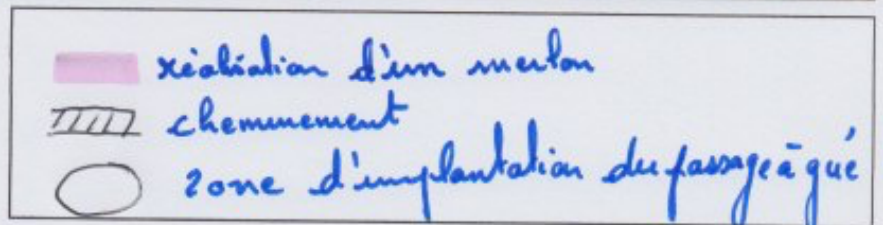 réalisation d'un merlon
cheminement
zone d'implantation du passage à gué